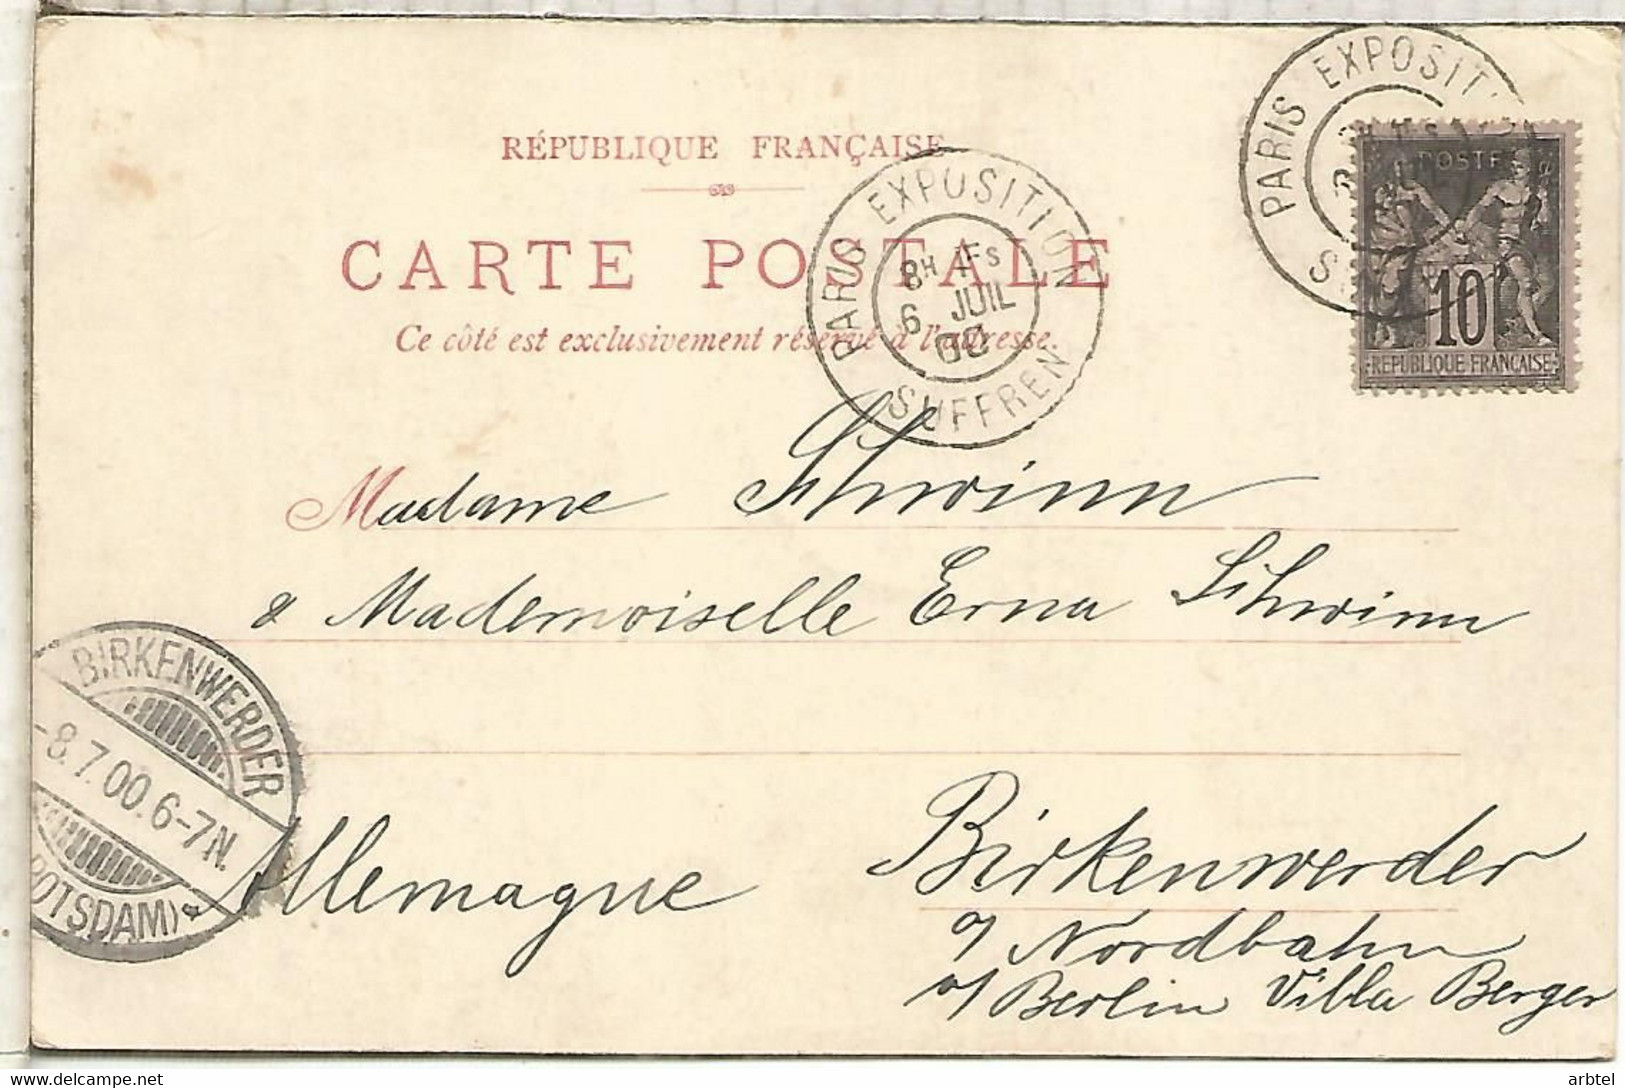 RÉPUBLIQUE FRANÇAISE
CARTE POSTALE
Ce côté est exclusivement réservé à l'adresse.
PARIS EXPOSITION
8H 1FS
6 JUIL
00
SUFFREN
PARIS EXPOSITI
POSTE
10
REPUBLIQUE FRANÇAISE
Madame Schwinn
& Mademoiselle Erna Schwinn
BIRKENWERDER
-8.7.00.6-7N.
(POTSDAM)
Allemagne
Birkenwerder
a/ Nordbahn
b/ Berlin Villa Berger
arbtel